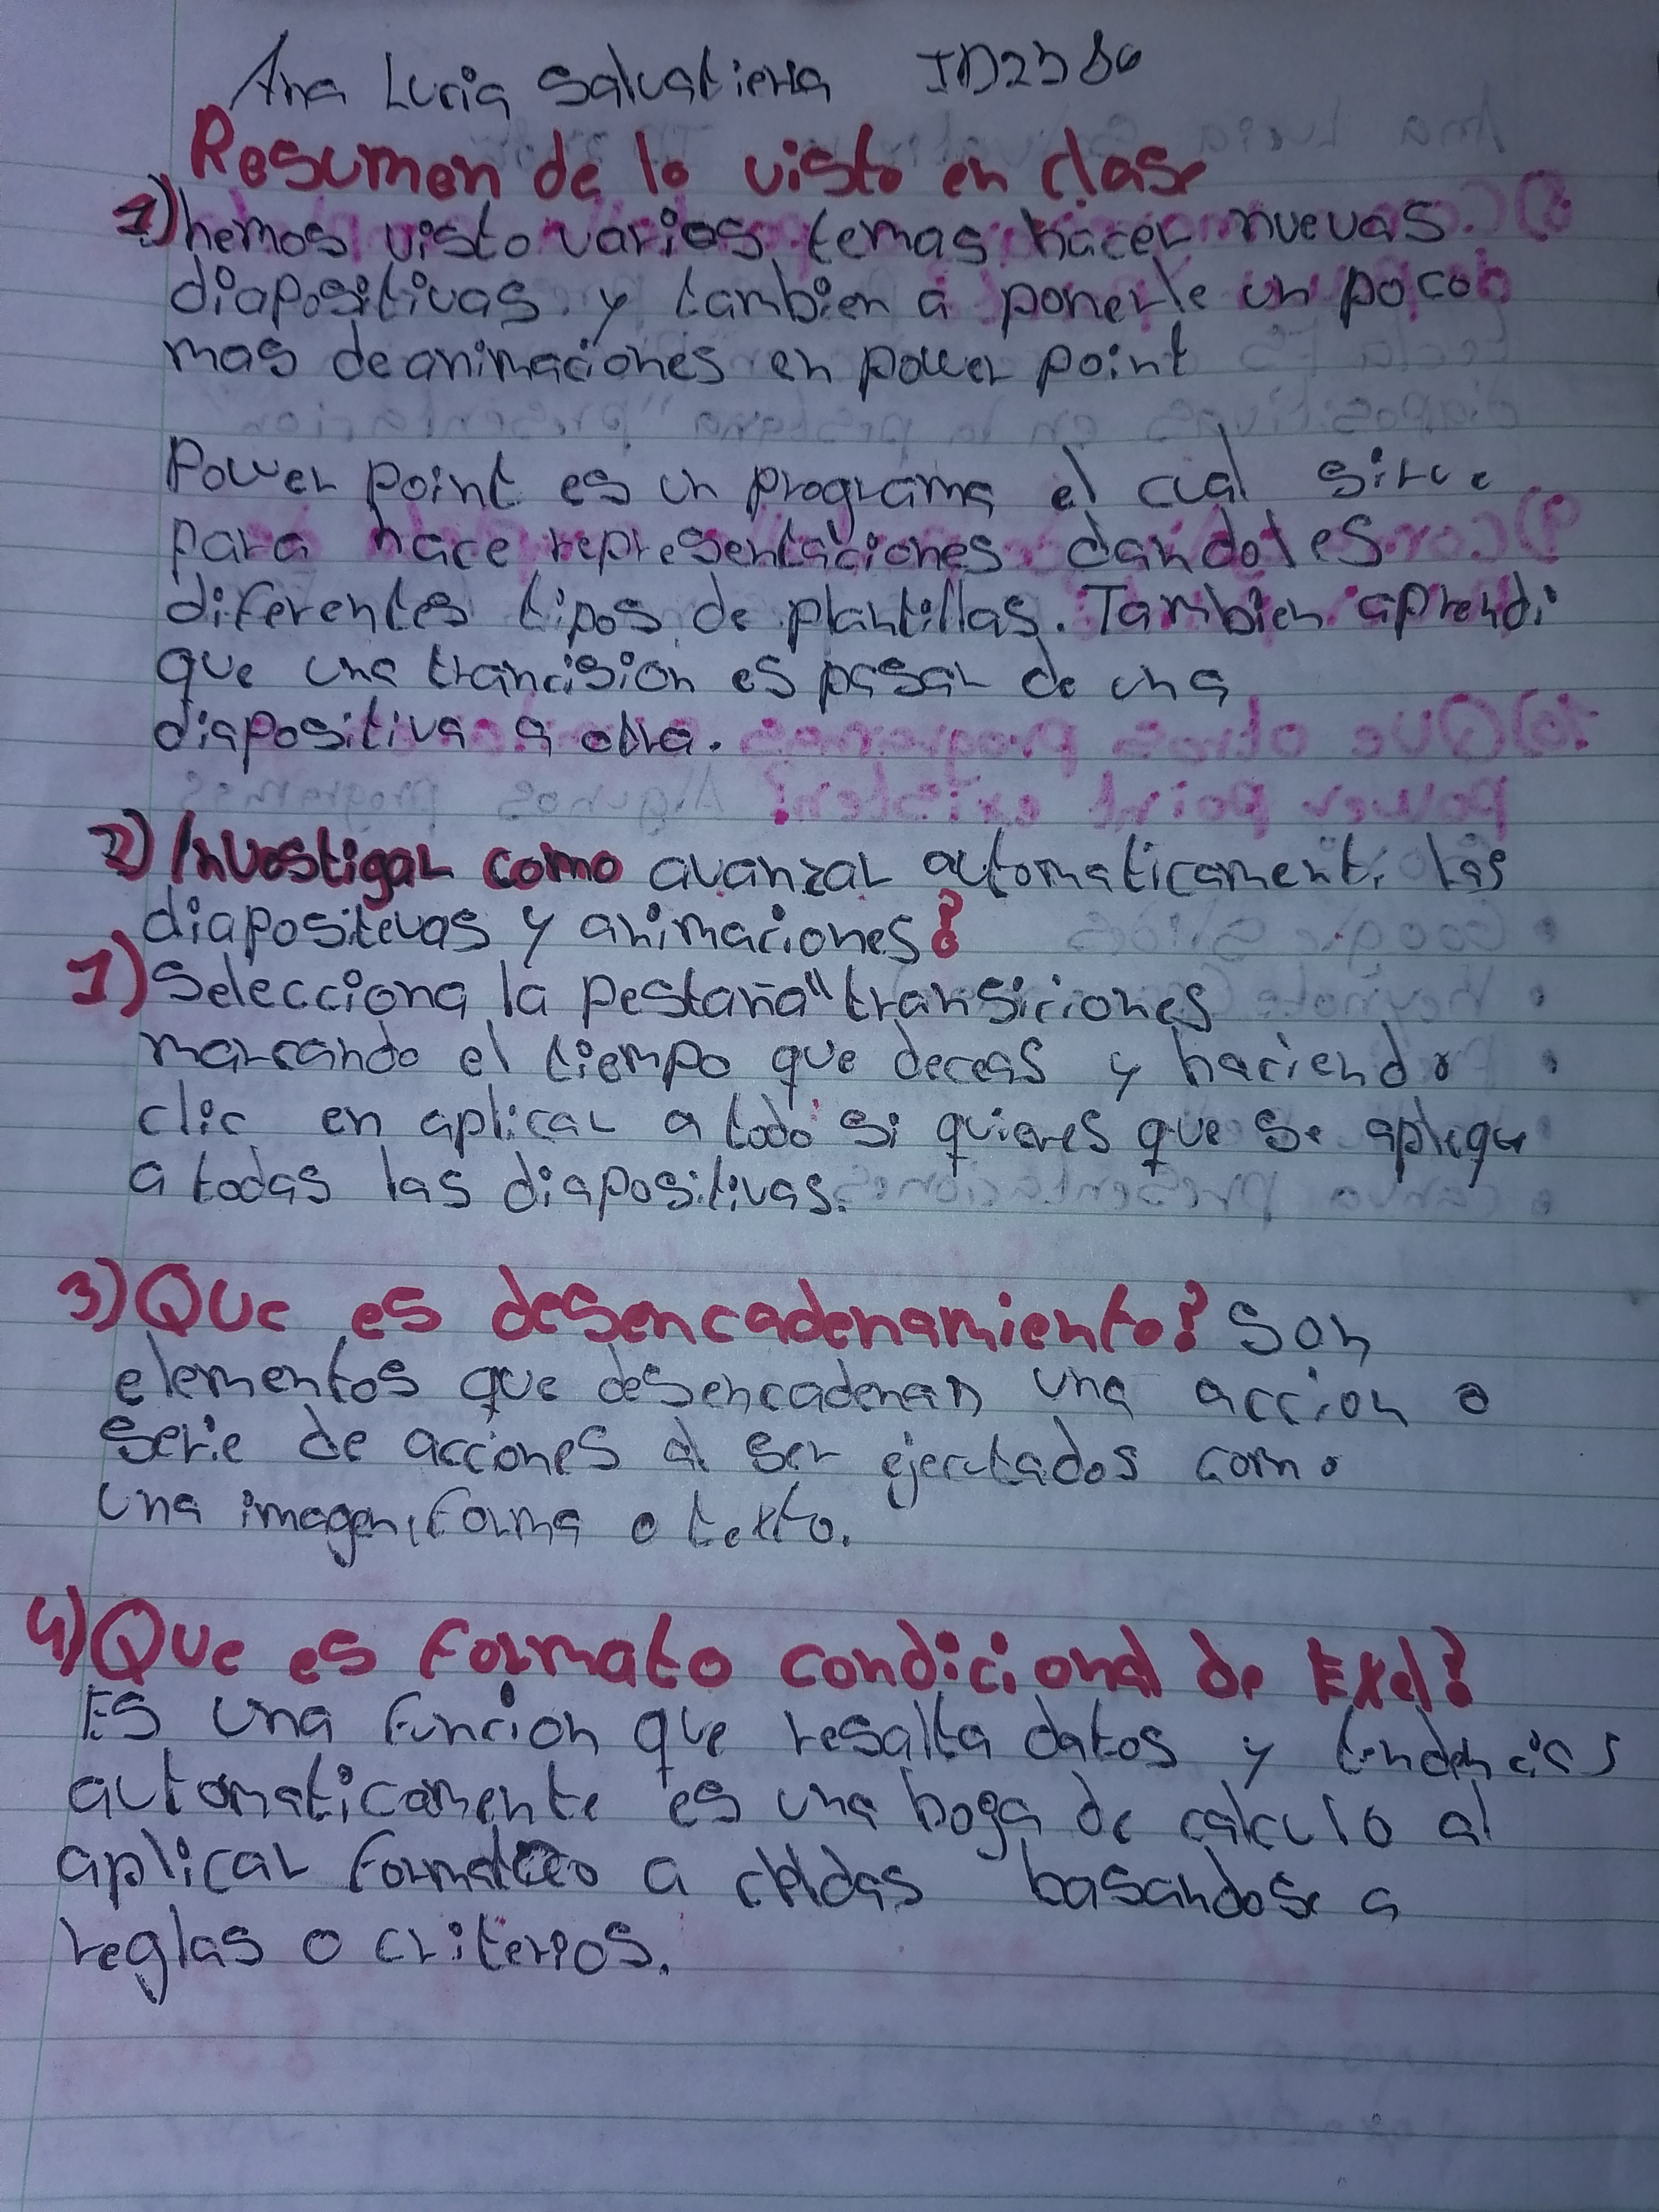 Ana Lucia Salvatierra ID2586
Resumen de lo visto en clase
1) hemos visto varios temas hacer nuevas
diapositivas y tambien a ponerle un poco
mas de animaciones en power point
Power point es un programa el cual sirve
para hace representaciones dandoles
diferentes tipos de plantillas. Tambien aprendi
que una trancision es pasar de una
diapositiva a otra.
2) Investigar como avanzar automaticamente las
diapositevas y animaciones?
1) Selecciona la pestaña "transiciones
marcando el tiempo que deceas y haciendo
clic en aplicar a todo si quieres que se aplique
a todas las diapositivas.
3) Que es desencadenamiento? Son
elementos que desencadenan una accion o
serie de acciones al ser ejecutados como
una imagen, forma o texto.
4) Que es formato condicional de Exel?
Es una funcion que resalta datos y tendencias
automaticamente es una hoga de calculo al
aplicar formato a celdas basandose a
reglas o criterios.